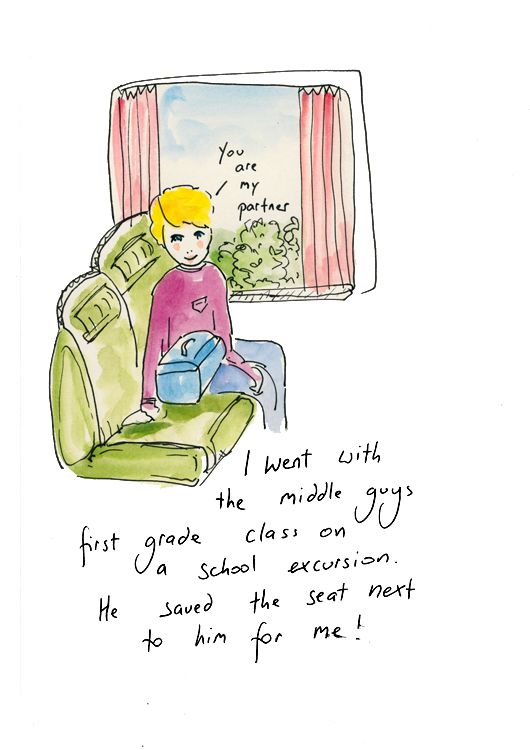 You
are
my
partner
I went with
the middle guys
first grade class on
a school excursion.
He saved the seat next
to him for me!